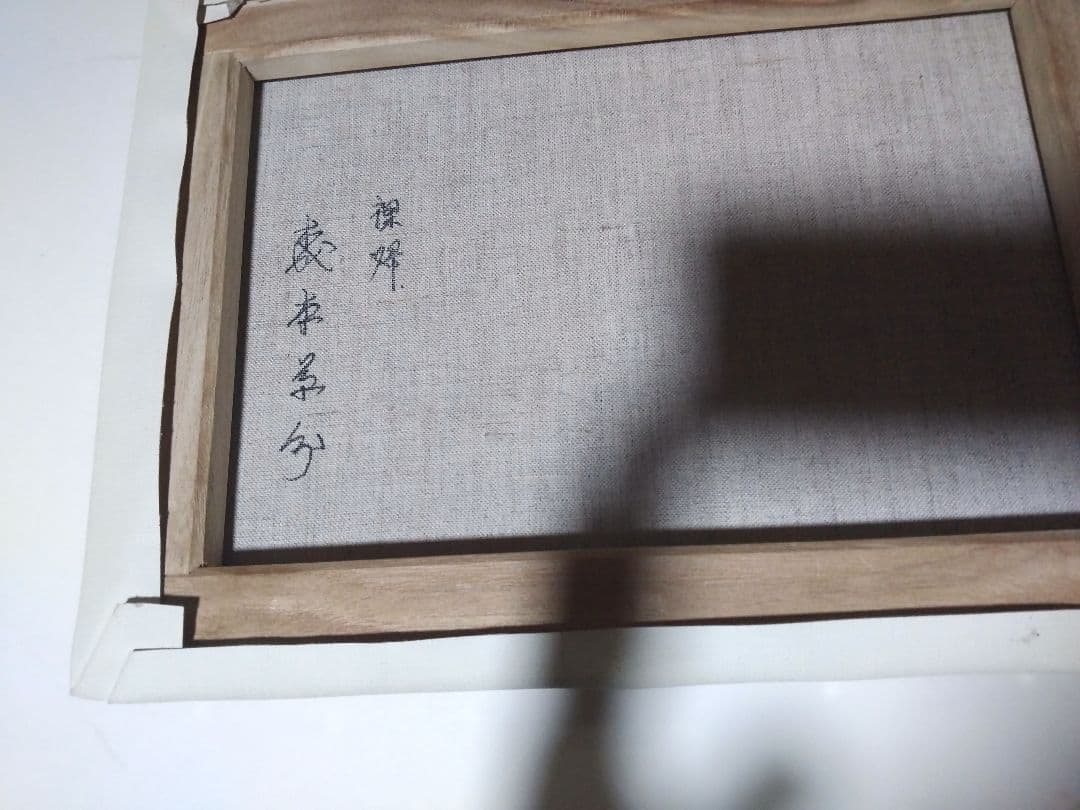 裸婦
森本草介